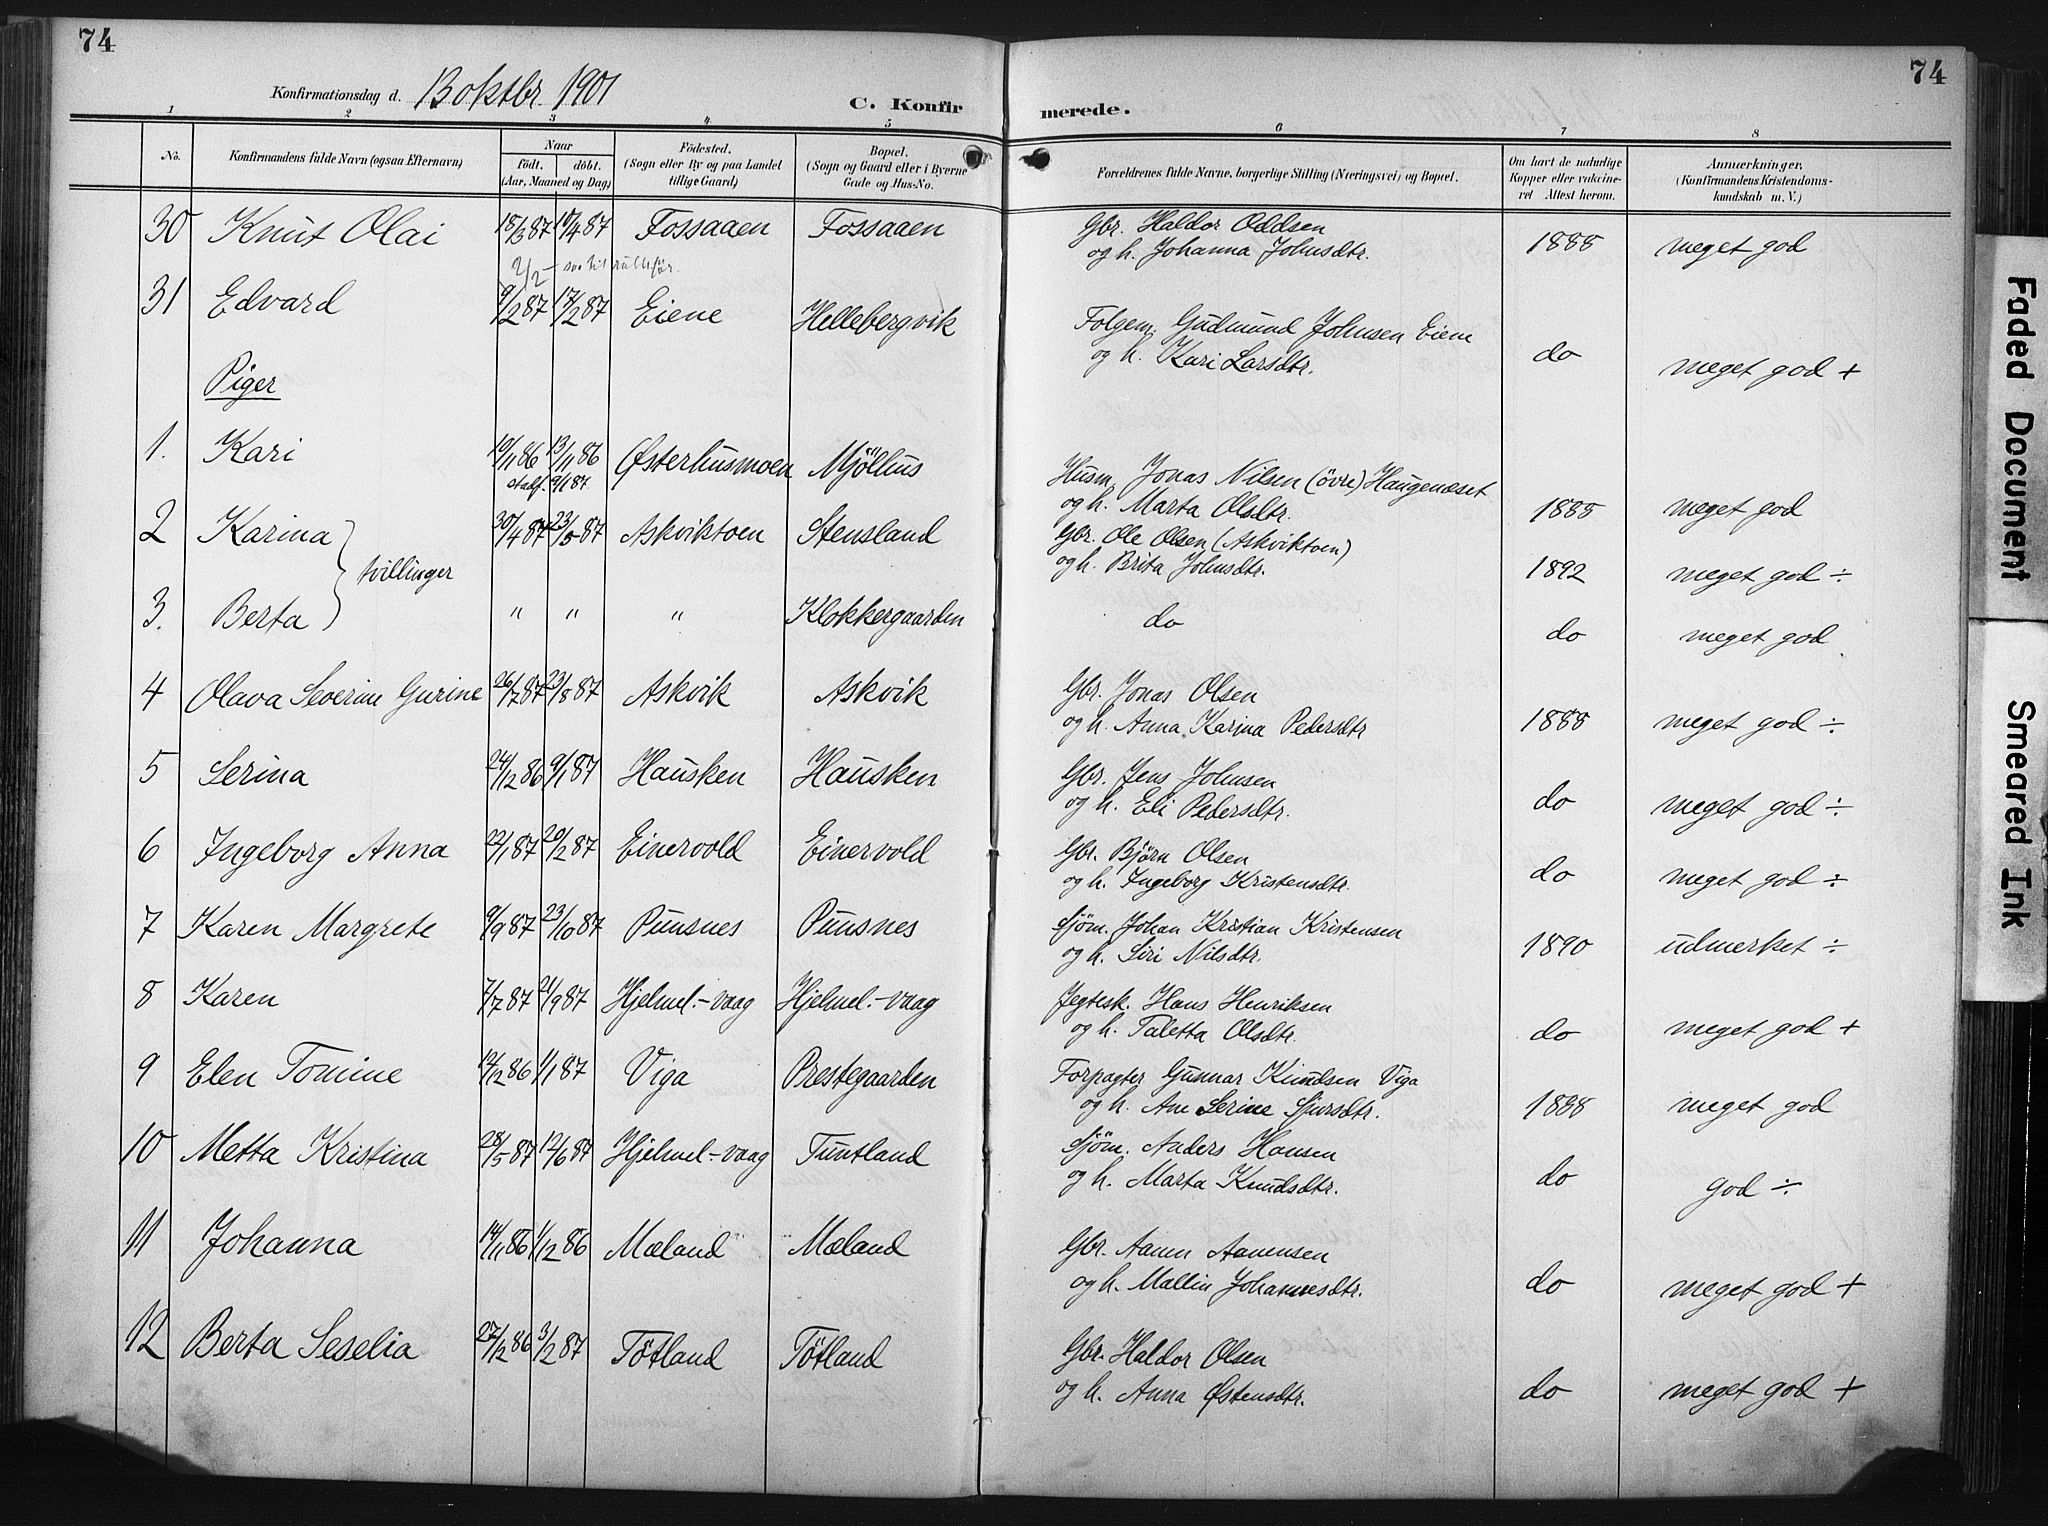 74
74
Konfirmationsdag d. 13 oktbr. 1901
C. Konfirmerede.
1 2 3 4 5 6 7 8
No. Konfirmandens fulde Navn (ogsaa Efternavn) Naar födt. döbt. (Aar, Maaned og Dag) Födested. (Sogn eller By og paa Landet tillige Gaard) Bopæl. (Sogn og Gaard eller i Byerne Gade og Hus-No. Forældrenes fulde Navne, borgerlige Stilling (Næringsvei) og Bopæl. Om havt de naturlige Kopper eller vakcineret Attest herom. Anmærkninger, (Konfirmandens Kristendomskundskab m. V.)
30 Knut Olai 18/3 87 10/4 87 Fossaaen Fossaaen Gbr. Haldor Oddsen
og h. Johanna Johnsdtr. 1888 meget god
2/2
31 Edvard 9/2 87 17/2 87 Eiene Hellebergvik Folgem. Gudmund Johnsen Eiene
og h. Kari Larsdtr. do meget god +
Piger
1. Kari 10/11 86 13/11 86 Østerhusmoen Mjölhus Husm. Jonas Nilsen (övre) Haugenæset
stadf. 9/1 87. og h. Marta Olsdtr. 1885 meget god
2 Karina 30/4 87 23/5 87 Askviktoen Stensland Gbr. Ole Olsen (Askviktoen)
tvillinger og h. Brita Johnsdtr. 1892 meget god ÷
3. Berta " " " Klokkergaarden do do meget god
4 Olava Severine Gurine 26/7 87 23/8 87 Askvik Askvik Gbr. Jonas Olsen
og h. Anna Karina Pedersdtr 1888 meget god ÷
5 Serina 24/12 86 9/1 87 Hausken Hausken Gbr. Jens Johnsen
og h. Eli Pedersdtr. do meget god ÷
6 Ingeborg Anna 22/1 87 20/2 87 Einervold Einervold Gbr. Björn Olsen
og h. Ingeborg Kristensdtr. do meget god ÷
7 Karen Margrete 9/9 87 23/10 87 Punsnes Punsnes Sjöm. Johan Kristian Kristensen
og h. Siri Nilsdtr. 1890 udmerket ÷
8 Karen 7/7 87 21/9 87 Hjelmel.-vaag Hjelmel.-vaag Jegtesk. Hans Henriksen
og h. Taletta Olsdtr. do meget god +
9 Elen Tomine 12/12 86 1/1 87 Viga Prestegaarden Forpagter Gunnar Knudsen Viga
og h. Ane Serine Sjursdtr. 1888 meget god
10 Metta Kristina 28/5 87 12/6 87 Hjelmel.-vaag Tuntland Sjöm. Anders Hansen
og h. Marta Knudsdtr. do god ÷
11 Johanna 14/11 86 1/12 86 Mæland Mæland Gbr. Aanen Aanensen
og h. Mallin Johannesdtr. do meget god +
12 Berta Seselia 27/12 86 3/2 87 Tötland Tötland Gbr. Haldor Olsen
og h. Anna Østensdtr. do meget god +
Faded Document
Smeared Ink